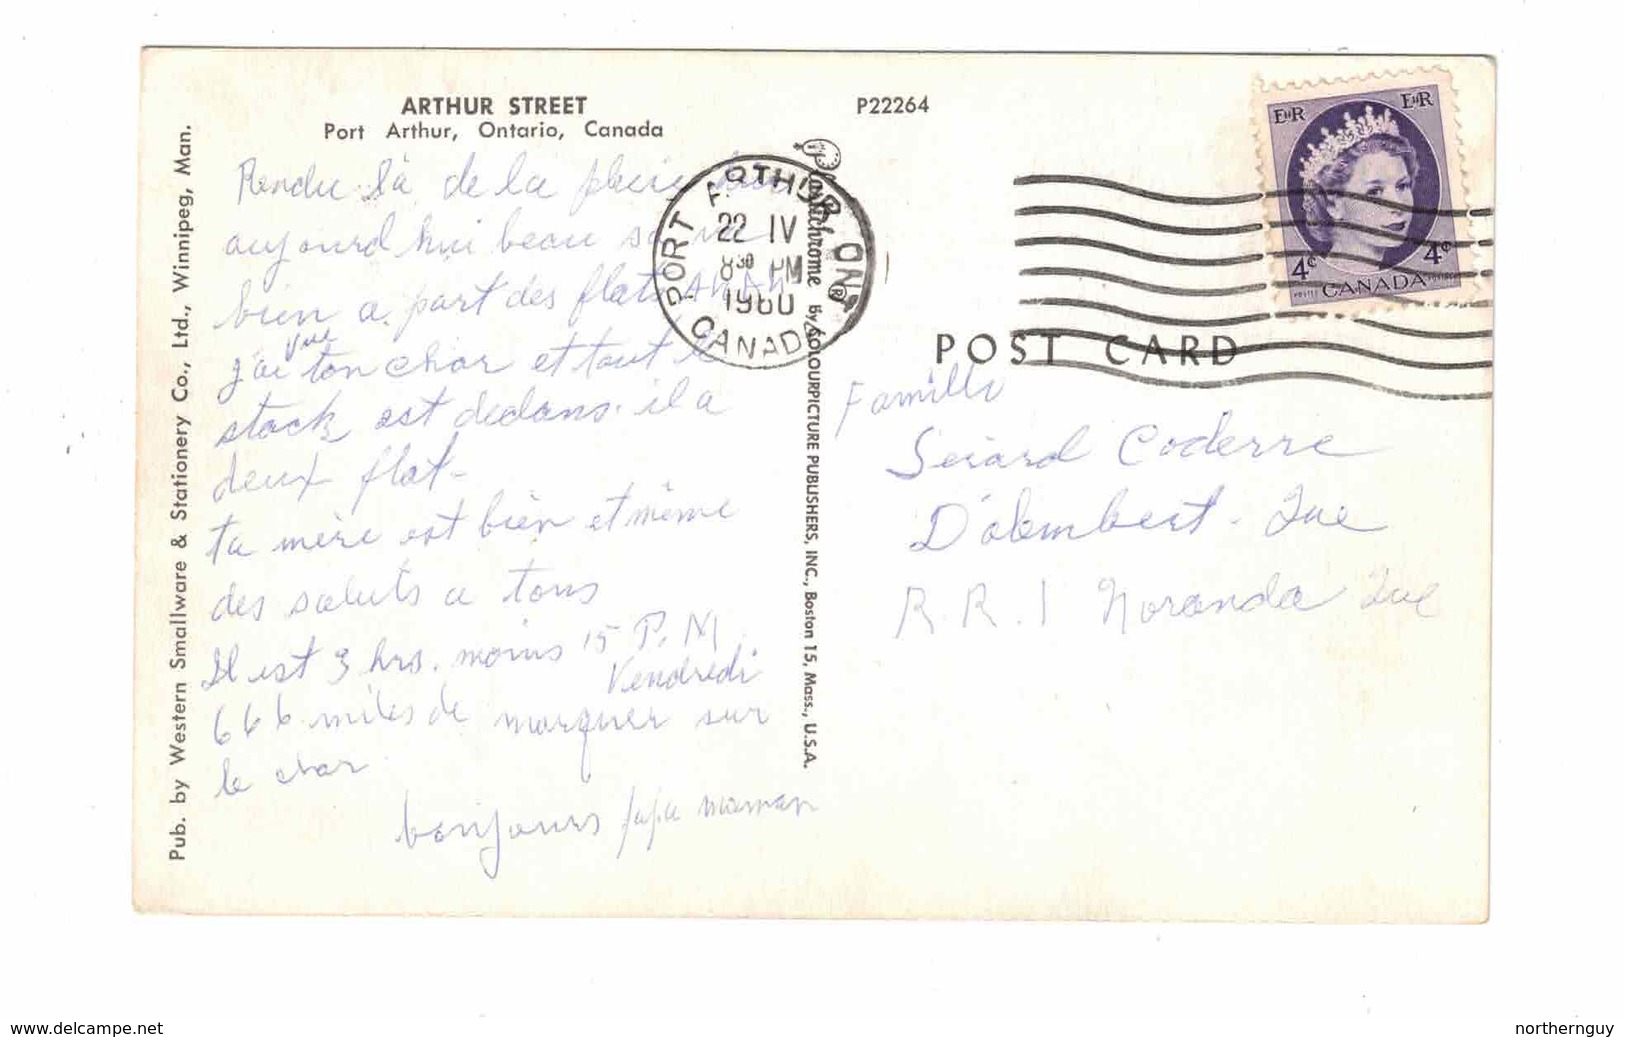 ARTHUR STREET
Port Arthur, Ontario, Canada
P22264
Pub. by Western Smallware & Stationery Co., Ltd., Winnipeg, Man.
Rendu là de la pluie
aujourd hui beau
bien a part des flats AH AH
j'ai vue ton char et tout le
stock est dedans. il a
deux flat-
ta mère est bien et même
des saluts a tous
Il est 3 hrs. moins 15 P.M
Vendredi
666 miles de marquer sur
le char
bonjours papa maman
PORT ARTHUR ONT.
22 IV
8 30 PM
1960
CANADA
Plastichrome ® by COLOURPICTURE PUBLISHERS, INC., Boston 15, Mass., U.S.A.
EIIR EIIR
4¢ 4¢
POSTES POSTAGE
CANADA
POST CARD
Famille
Gérard Coderre
D'alembert - Que
R.R. 1 Noranda Que
www.delcampe.net
northernguy